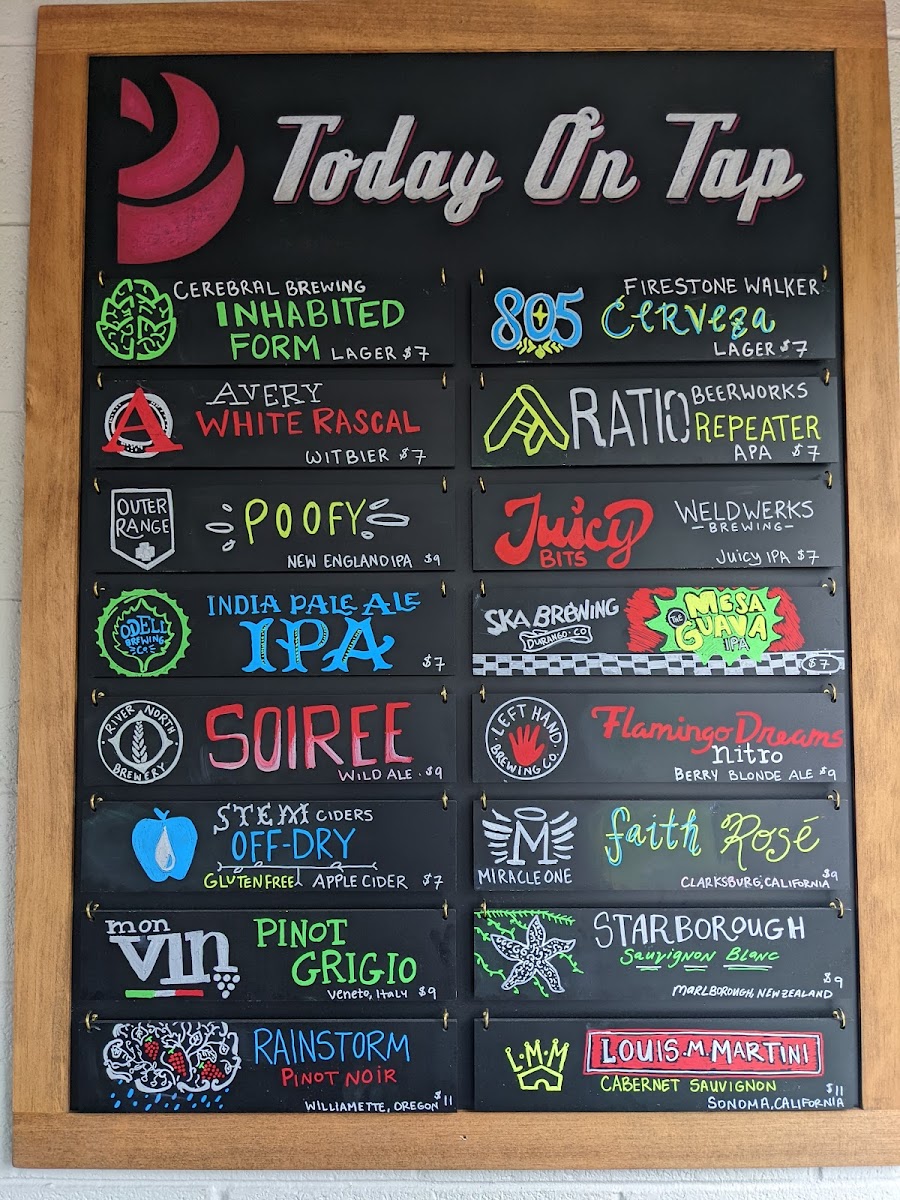 Today On Tap
CEREBRAL BREWING
INHABITED
FORM LAGER $7
805
FIRESTONE WALKER
Cerveza
LAGER $7
A
AVERY
WHITE RASCAL
WITBIER $7
RATIO BEERWORKS
REPEATER
APA $7
OUTER
RANGE
POOFY
NEW ENGLAND IPA $9
Juicy
BITS
WELDWERKS
-BREWING-
Juicy IPA $7
ODELL
BREWING
Co
INDIA PALE ALE
IPA
$7
SKA BREWING
DURANGO, CO
THE MESA
GUAVA
IPA
$7
RIVER NORTH
BREWERY
SOIREE
WILD ALE. $9
LEFT HAND
BREWING CO.
Flamingo Dreams
Nitro
BERRY BLONDE ALE $9
STEM CIDERS
OFF-DRY
GLUTEN FREE APPLE CIDER $7
M
MIRACLE ONE
faith Rosé
CLARKSBURG, CALIFORNIA $9
mon
vin
PINOT
GRIGIO
Veneto, Italy $9
STARBOROUGH
Sauvignon Blanc
MARLBOROUGH, NEW ZEALAND $9
RAINSTORM
PINOT NOIR
WILLIAMETTE, OREGON $11
L.M.M
LOUIS.M.MARTINI
CABERNET SAUVIGNON
$11
SONOMA, CALIFORNIA